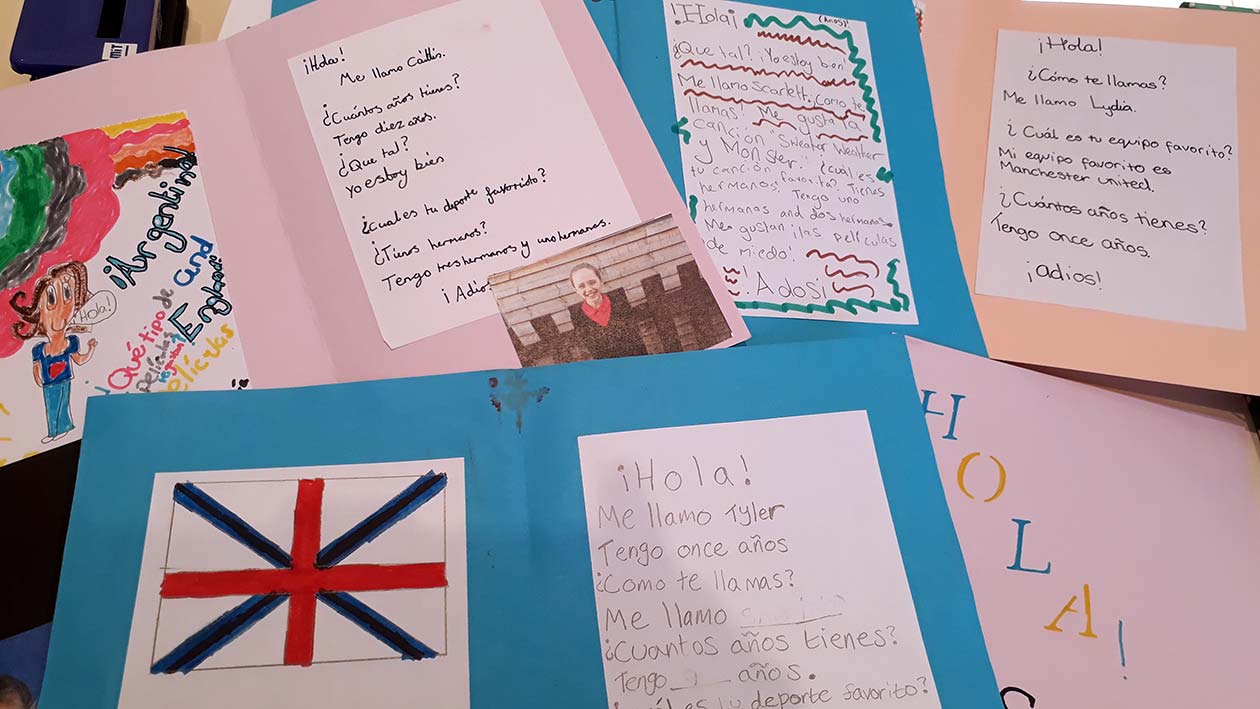 ¡Hola!
Me llamo Caitlis.
¿Cuántos años tienes?
Tengo diez años.
¿Que tal?
yo estoy bien
¿cual es tu deporte favorido?
¿Tienes hermanos?
Tengo tres hermanos y uno hermanas.
¡Adio
!Hola¡
(Años)!
¿Que tal? ¡Yo estoy bien
Me llamo Scarlett. ¿Como te
llamas! Me gusta la
canción "Sweater Weather
y Monster". ¿cuál es
tu canción favorita? Tienes
hermanos! Tengo uno
hermanas and dos hermanos.
Me gustan ¡las películas
de miedo!
! Adosi
¡Hola!
¿Cómo te llamas?
Me llamo Lydia.
¿Cuál es tu equipo favorito?
Mi equipo favorito es
Manchester united.
¿Cuántos años tienes?
Tengo once años.
¡adios!
¡Argentina
and
England
¡Hola!
¿Qué tipo de
películas
películas
¡Hola!
Me llamo Tyler
Tengo once años
¿Como te llamas?
Me llamo
¿Cuantos años tienes?
Tengo ___ años.
es tu deporte favorito?
HOLA!